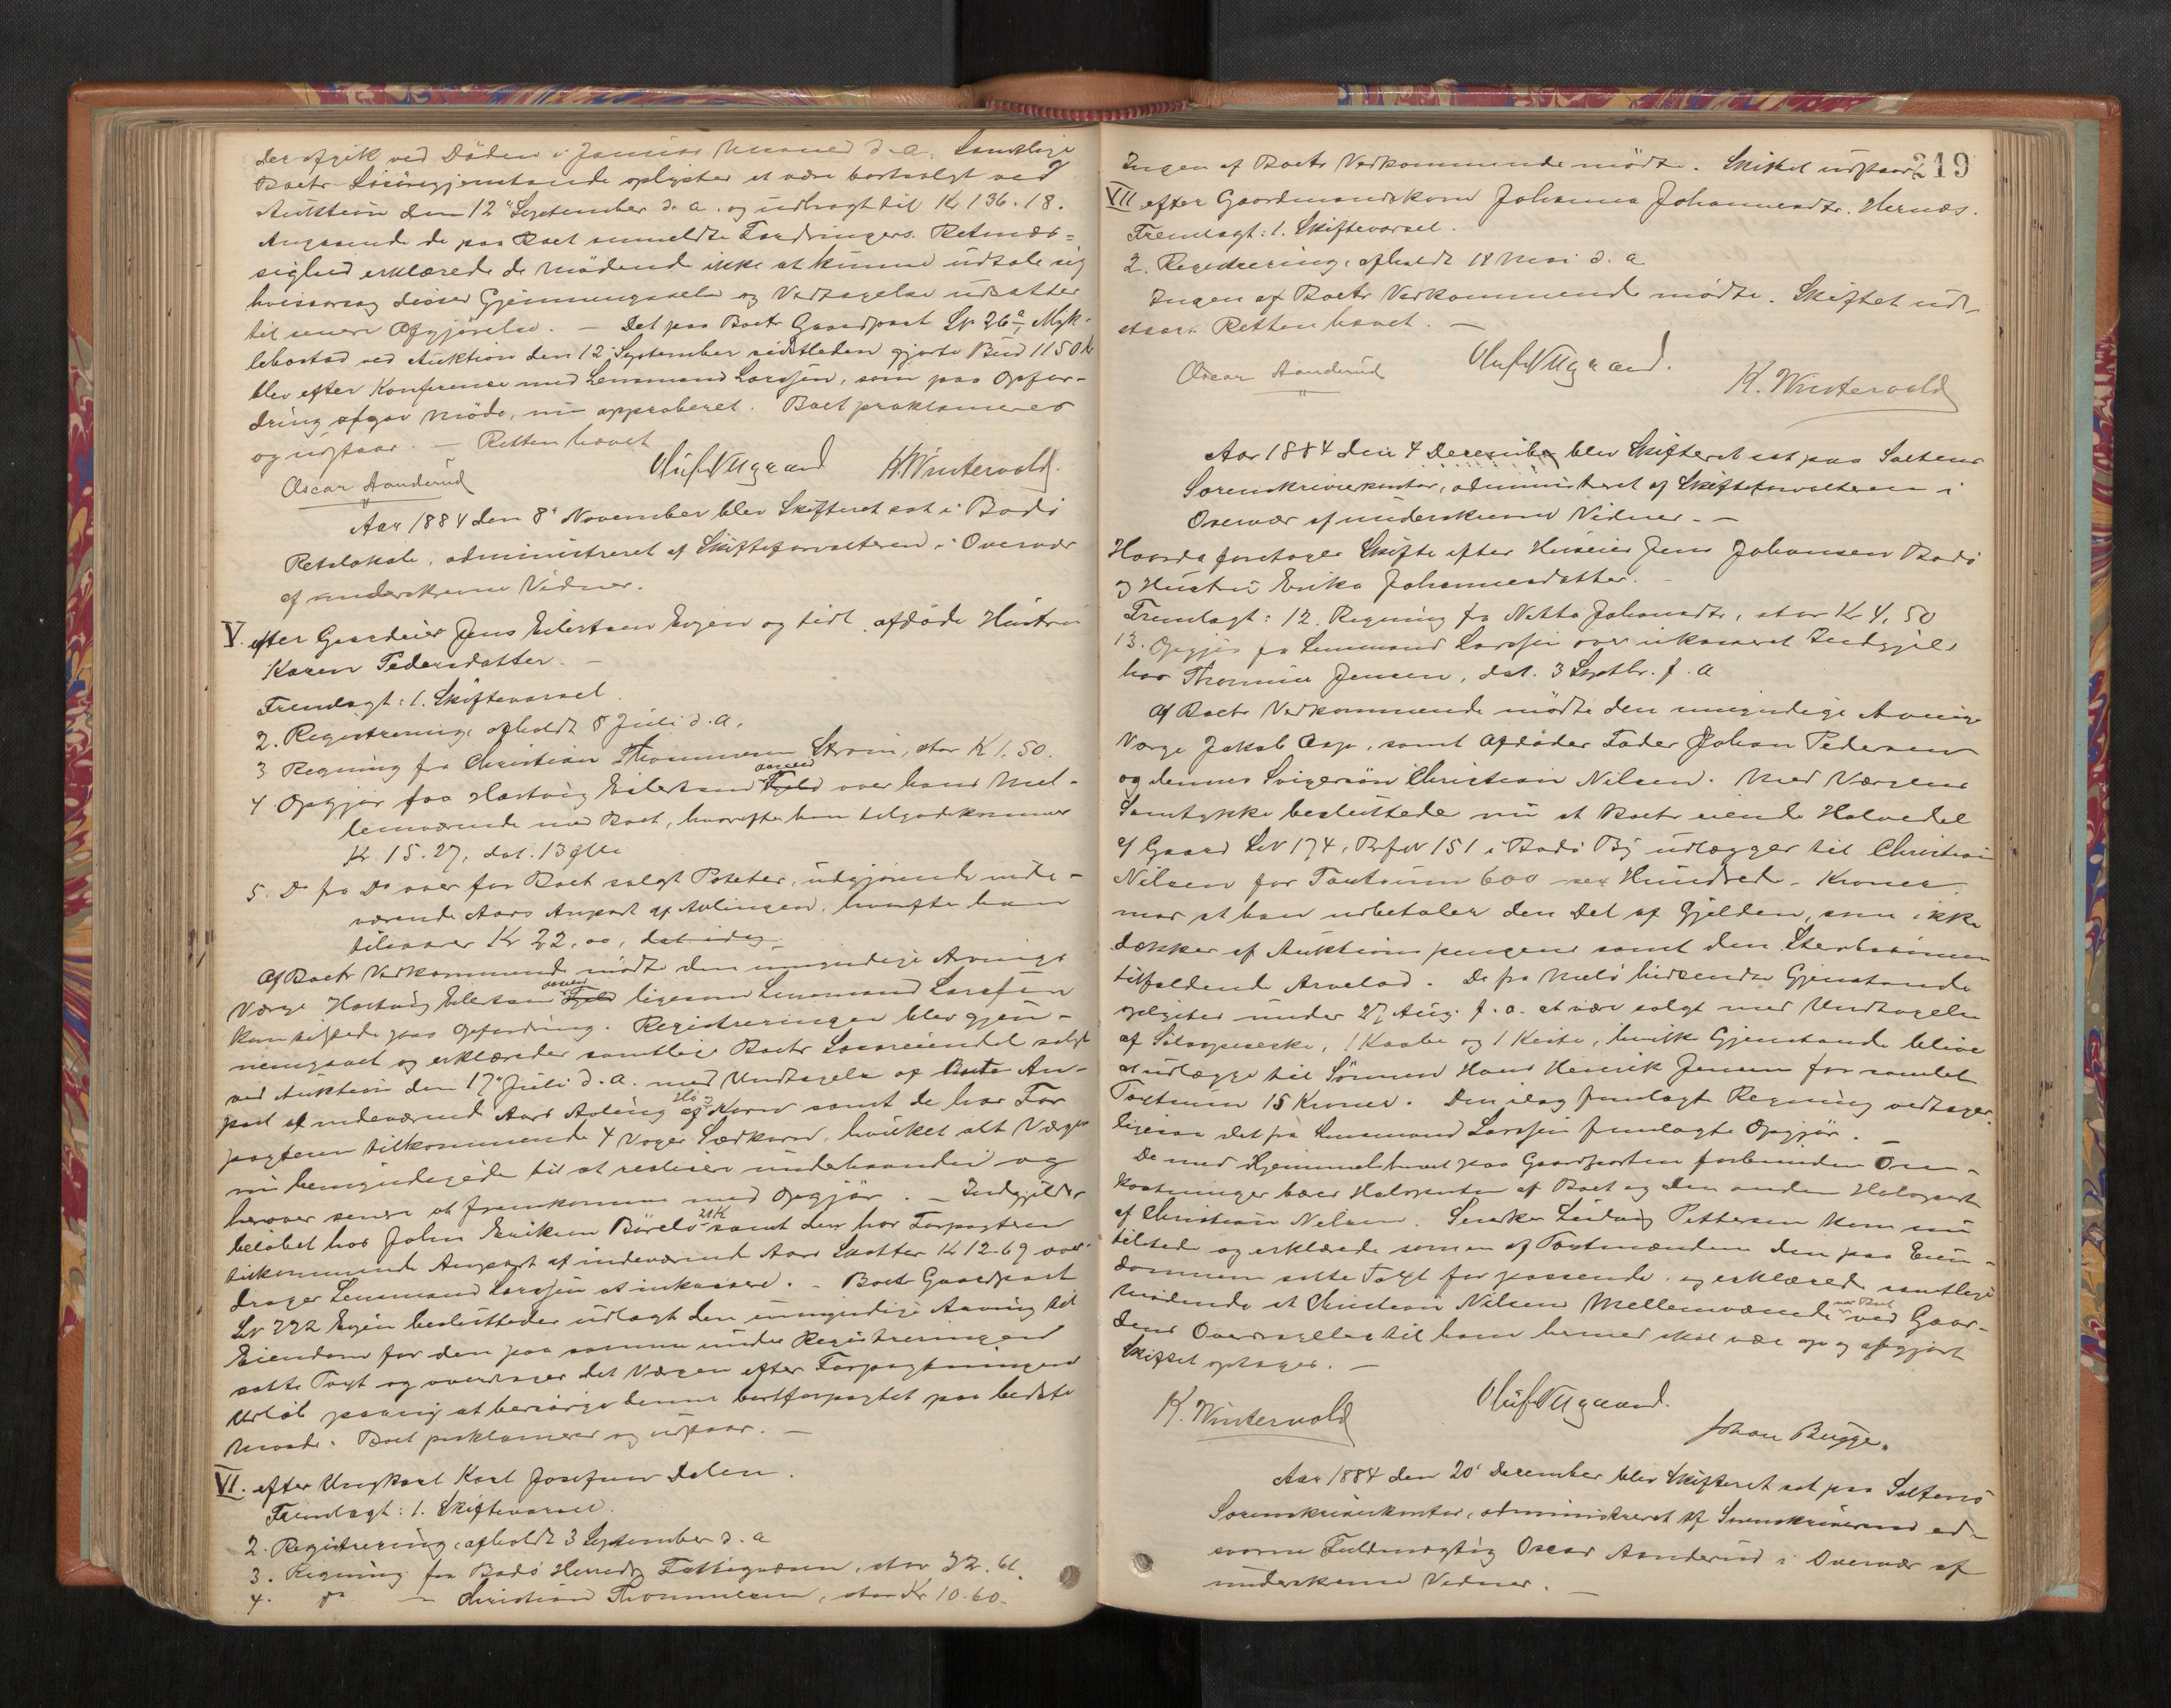 der afgik ved Döden i Januar Maaned d. A. Samtlige
Boets Lösöregjenstande oplystes at være bortsolgt ved
Auktion den 12' September d. a. og udbragt til Kr 136.18.
Angaaende de paa Boet anmeldte Fordringers Retmæs=
sighed erklærede de Mödende ikke at kunne udtale sig
hvisaarsag disses Gjennemgaaelse og Vedtagelse udsattes
til senere Afgjörelse. — Det paa Boets Gaardpart Lr 26a, Myk-
lebostad ved Auktion den 12' September sidstleden gjorte Bud 1150 kr
blev efter Konference med Lensmand Larssen, som paa Opfor-
dring afgav Möde, nu approberet. Boet proklameres
og udstaar. — Retten hævet
Oscar Aanderud Oluf Aagaard K. Wintervold.
Aar 1884 den 8' November blev Skifteret sat i Bodö
Retslokale, administreret af Skifteforvalteren i Overvær
af underskrevne Vidner.
V. efter Gaardeier Jens Eilertsen Evjen og tidl. afdöde Hustru
Karen Pedersdatter. —
Fremlagt: 1. Skiftevarsel.
2. Registrering, afholdt 8 Juli d. A.
3 Regning fra Christian Thommesen Ström, stor K 1.50.
4 Opgjör fra Hartvig Eilertsen Fjeld over hans Mel-
lemværende med Boet, hvorefter han tilgodekommer
Kr. 15.27, dat. 13
5. Do fra Do over for Boet solgt Poteter, udgjörende inde-
værende Aars Anpart af Avlingen, hvorefter han
tilsvarer Kr 22,00, dat idag.
Af Boets Vedkommende mödte den umyndige Arvings
Værge Hartvig Eilertsen Fjeld ligesom Lensmand Larssen
kom tilstede paa Opfordring. Registreringen blev gjen-
nemgaaet og erklæredes samtlige Boets Lösöreiendel solgt
ved Auktion den 17' Juli d. A. med Undtagelse af Boets An-
part af indeværende Aars Avling af Hö og Korn samt de hos For
pagteren tilkommende 4 Voger Sædkorn, hvilket alt Værgen
nu bemyndigede til at realisere underhaanden og
herover senere at fremkomme med Opgjör. — Indgjælds-
belöbet hos John Eriksen Börelv 21 K samt den hos Forpagteren
tilkommende Anpart af indeværende Aars Skatter Kr 12.69 over-
drager Lensmand Larssen at inkassere. — Boets Gaardpart
Lr 222 Evjen besluttedes udlagt den umyndige Arving til
Eiendom for den paa samme under Registreringen
satte Taxt og overdrages det Værgen efter Forpagtningens
Udlöb paany at besörge denne bortforpagtet paa bedste
Maade. Boet proklameres og udstaar. —
VI. efter Ungkarl Karl Josefsen Dalen.
Fremlagt: 1. Skiftevarsel.
2. Registrering, afholdt 3 September d. a
3. Regning fra Bodö Herreds Fattigvæsen, stor 32.61.
4. do — Christian Thommesen, stor Kr 10.60.
219
Ingen af Boets Vedkommende mödte. Skiftet udstaar.
VII efter Gaardmandskone Johanna Johannesdtr. Hernæs.
Fremlagt: 1. Skiftevarsel.
2. Registrering, afholdt 18 Mai d. a
Ingen af Boets Vedkommende mödte. Skiftet ud-
staar. Retten hævet. —
Oscar Aanderud Oluf Aagaard. K. Wintervold
Aar 1884 den 4 December blev Skifteret sat paa Saltens
Sorenskriverkontor, administreret af Skifteforvalteren i
Overvær af underskrevne Vidner. —
Hvorda foretoges Skifte efter Huseier Jens Johansen Bodö
og Hustru Erika Johannesdatter. —
Fremlagt: 12. Regning fra Netta Johansdtr, stor Kr 4,50
13. Opgjör fra Lensmand Larssen over inkasseret Indgjæld
hos Thommes Jensen, dat. 3 Septbr. f. a
Af Boets Vedkommende mödte den umyndige Arvings
Værge Jakob Asp, samt Afdödes Fader Johan Pedersen
og dennes Svigersön Christian Nilsen. Med Værgens
Samtykke besluttedes nu at Boets eiende Halvedel
af Gaard LN 174, BrfN 151 i Bodö By udlægges til Christian
Nilsen for Taxtsum 600 — sex Hundrede — Kroner,
mod at han udbetaler den Del af Gjelden, som ikke
dækkes af Auktionspengene samt den Sterbsönnen
tilfaldende Arvelod. De fra Melö hidsendte Gjenstande
oplystes under 27 Aug. f. a. at være solgt med Undtagelse
af Sölvspiseske, 1 Kaabe og 1 Kiste, hvilke Gjenstande blive
at udlægge til Sönnen Hans Henrik Jensen for samlet
Taxtsum 15 Kroner. Den idag fremlagte Regning vedtages,
ligesaa det fra Lensmand Larssen fremlagte Opgjör. —
De med Hjemmelsbrevet paa Gaardparten forbundne Om-
kostninger bæres Halvparten af Boet og den anden Halvpart
af Christian Nilsen. Snedker Ludvig Pettersen kom nu
tilstede og erklærede som en af Taxtmændene den paa Eien-
dommen satte Taxt for passende, og erklærede samtlige
Mödende at Christian Nilsens Mellemværende med Boet ved Gaar-
dens Overdragelse til ham hermed skal være op og afgjort
Skiftet optages. —
K. Wintervold Oluf Aagaard. Johan Bugge.
Aar 1884 den 20' December blev Skifteret sat paa Saltens
Sorenskriverkontor, administreret af Sorenskriverens ed-
svorne Fuldmægtig Oscar Aanderud i Overvær af
underskrevne Vidner. —